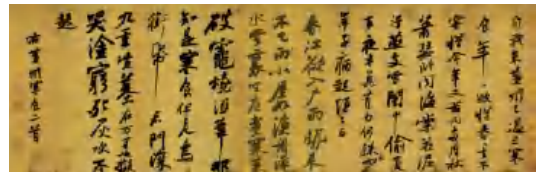 自我來黃州已過三寒
食年〻欲惜春春去不
容惜今年又苦雨兩月秋
蕭瑟臥聞海棠花泥
汙燕支雪闇中偷負
去夜半真有力何殊病少
年子病起頭已白
春江欲入戶雨勢來
不已雨小屋如漁舟濛〻
水雲裏空庖煮寒菜
破竈燒濕葦那
知是寒食但見烏
銜帋君門深
九重墳墓在万里也擬
哭塗窮死灰吹不
起
右黃州寒食二首